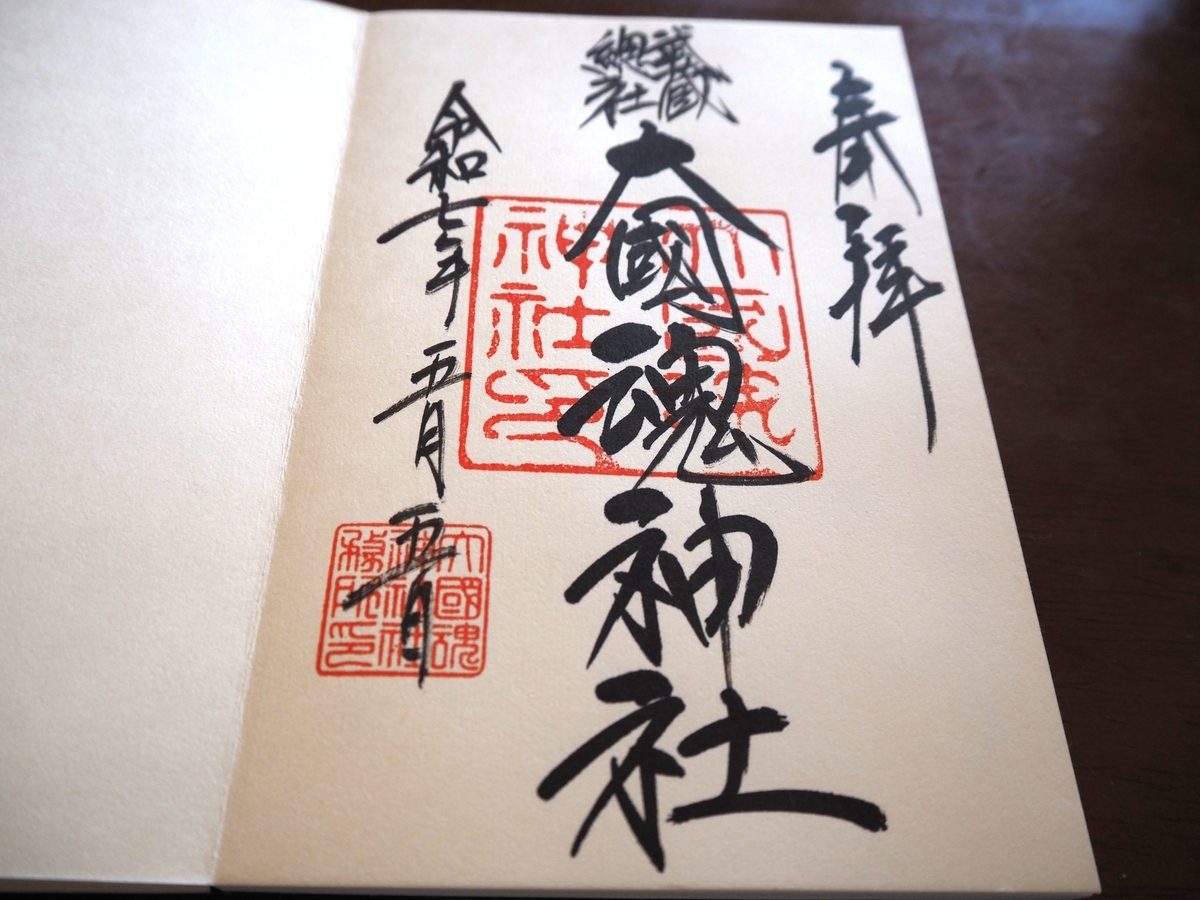 奉拝
武蔵
總社
大國魂神社
令和七年 五月 五日
大國魂
神社印
大國魂
神社社
務所印